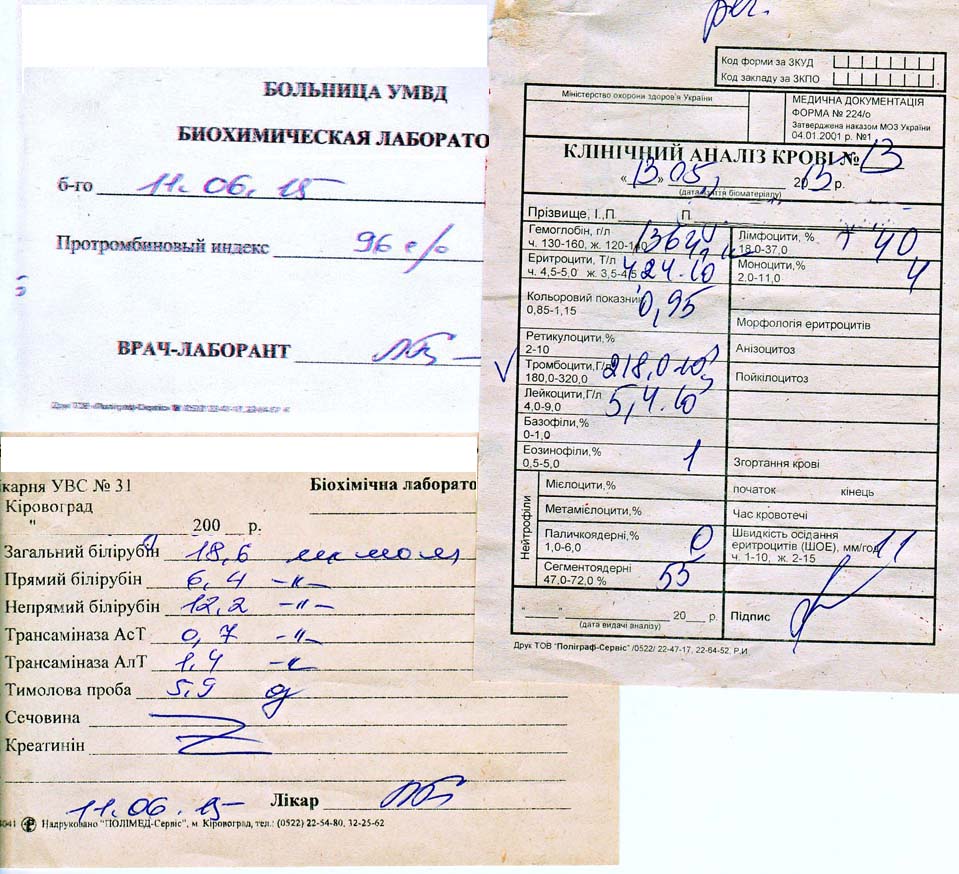 БОЛЬНИЦА УМВД
БИОХИМИЧЕСКАЯ ЛАБОРАТО
б-го 11.06.15
Протромбиновый индекс 96 %
ВРАЧ-ЛАБОРАНТ
карня УВС № 31 Біохімічна лаборато
Кіровоград
" 200 р.
Загальний білірубін 18,6
Прямий білірубін 6,4 -"-
Непрямий білірубін 12,2 -"-
Трансаміназа АсТ 0,7 -"-
Трансаміназа АлТ 1,4 -"-
Тимолова проба 5,9
Сечовина
Креатинін
11.06.15 Лікар
Надруковано "ПОЛІМЕД-Сервіс", м. Кіровоград, тел.: (0522) 22-54-80, 32-25-62
Код форми за ЗКУД
Код закладу за ЗКПО
Міністерство охорони здоров'я України
МЕДИЧНА ДОКУМЕНТАЦІЯ
ФОРМА № 224/о
Затверджена наказом МОЗ України
04.01.2001 р. №1
КЛІНІЧНИЙ АНАЛІЗ КРОВІ № 13
«13» 05 2015 р.
(дата взяття біоматеріалу)
Прізвище, І.,П. П
Гемоглобін, г/л 136
ч. 130-160, ж. 120-140
Еритроцити, Т/л
ч. 4,5-5,0 ж. 3,5-4,5
Кольоровий показник 0,95
0,85-1,15
Ретикулоцити,%
2-10
Тромбоцити,Г/л 218,0
180,0-320,0
Лейкоцити,Г/л 5,4
4,0-9,0
Базофіли,%
0-1,0
Еозинофіли,% 1
0,5-5,0
Нейтрофіли
Мієлоцити,%
Метамієлоцити,%
Паличкоядерні,% 0
1,0-6,0
Сегментоядерні 55
47.0-72,0 %
" " 20 р.
(дата видачі аналізу)
Лімфоцити, % 40
18.0-37,0
Моноцити,% 4
2.0-11,0
Морфологія еритроцитів
Анізоцитоз
Пойкілоцитоз
Згортання крові
початок кінець
Час кровотечі
Швидкість осідання
еритроцитів (ШОЕ), мм/год 11
ч. 1-10, ж. 2-15
Підпис
Друк ТОВ "Поліграф-Сервіс" /0522/ 22-47-17, 22-64-52, Р.И.